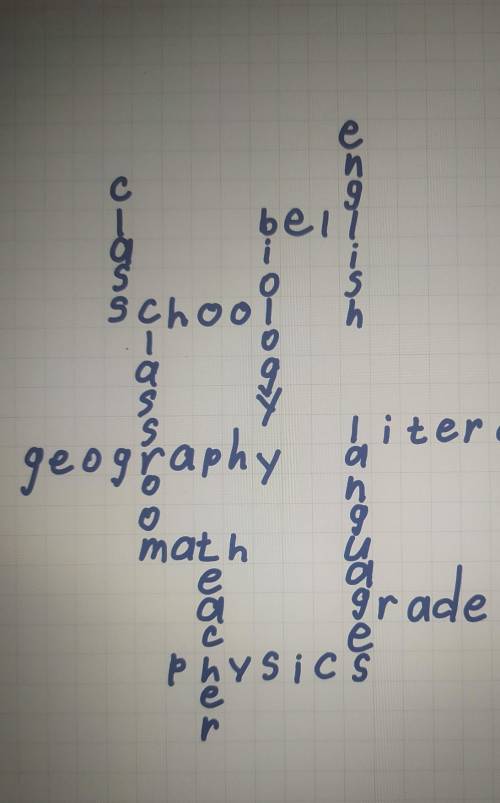 english
class
bell
biology
school
classroom
liter
languages
geography
math
teacher
grade
physics